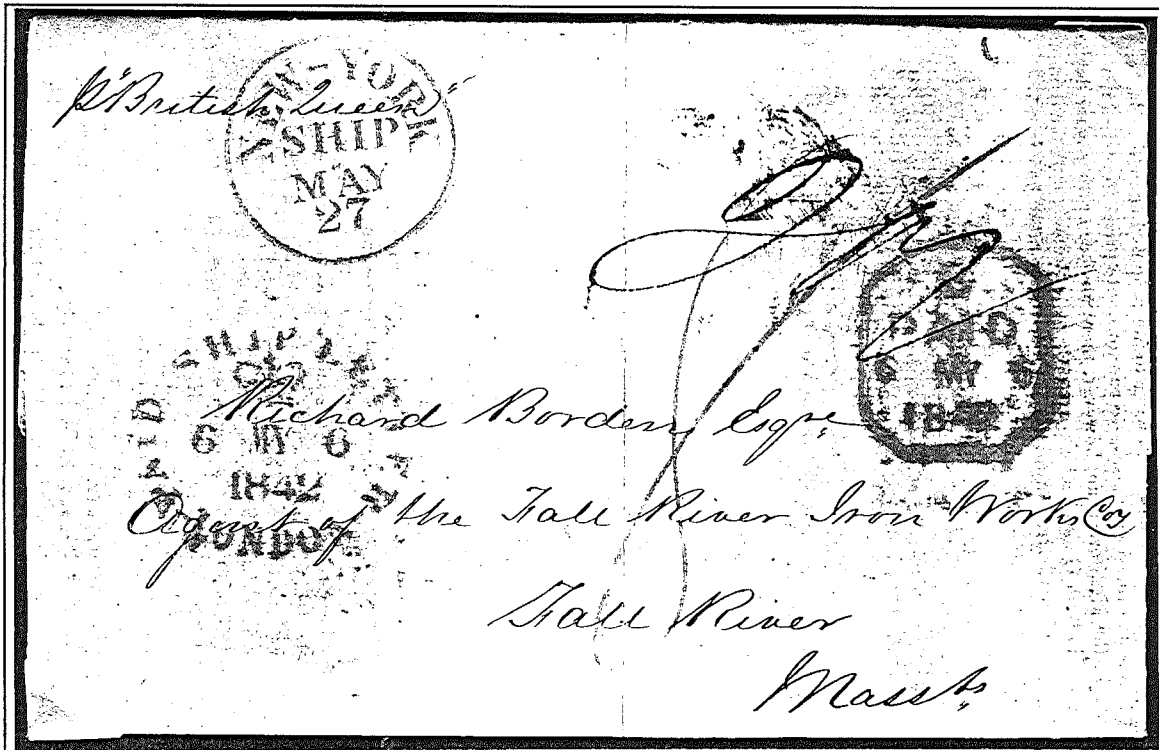 p "British Queen"
NEW-YORK
SHIP
MAY
27
PAID SHIP LETTER
6 MY 6
1842
LONDON
PAID
6 MY 6
1842
Richard Borden, Esqre
Agent of the Fall River Iron Works Coy
Fall River
Massts